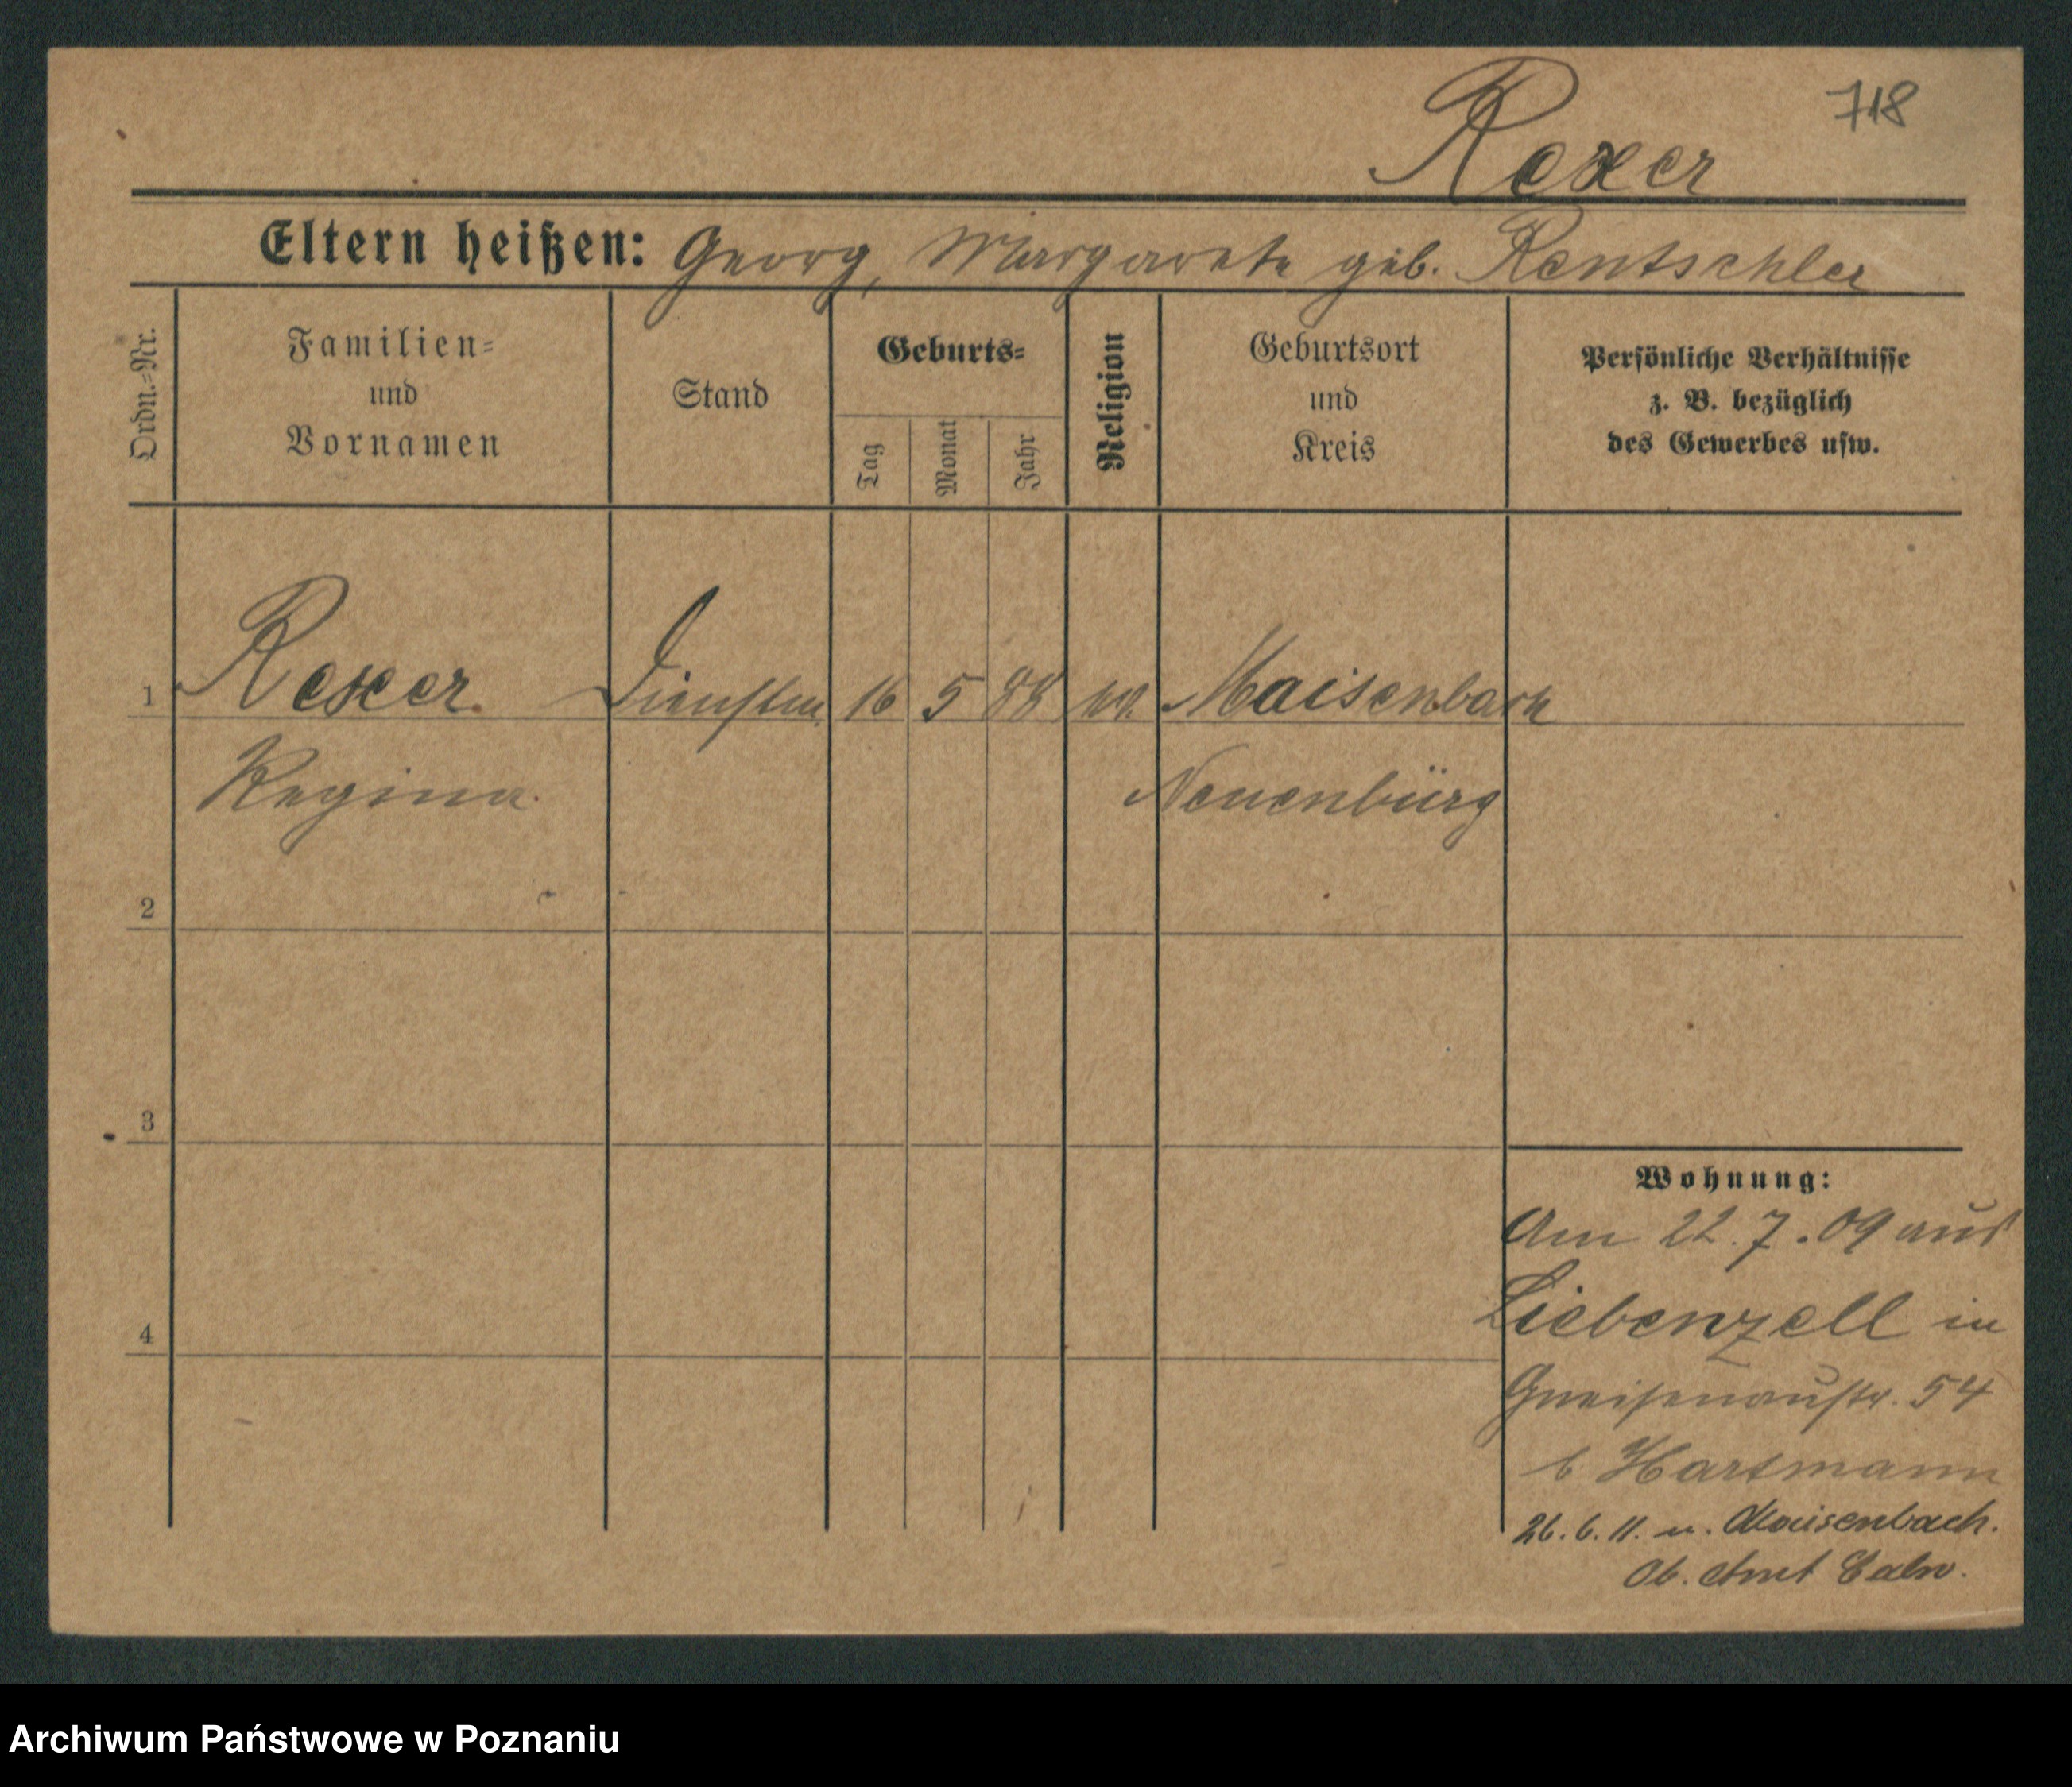 718
Rexer
Eltern heißen: Georg, Margarete geb. Rentschler
Ordn.-Nr.
Familien-
und
Vornamen
Stand
Geburts-
Tag
Monat
Jahr
Religion
Geburtsort
und
Kreis
Persönliche Verhältnisse
z. B. bezüglich
des Gewerbes usw.
1 Rexer. 16 5 88 Maisenbach
Regina. Neuenbürg
2
3
4
Wohnung:
Am 22.7.09 aus
Liebenzell in
Gneisenaustr. 54
b Hartmann
26.6.11. n. Maisenbach.
Ob. Amt Calw.
Archiwum Państwowe w Poznaniu